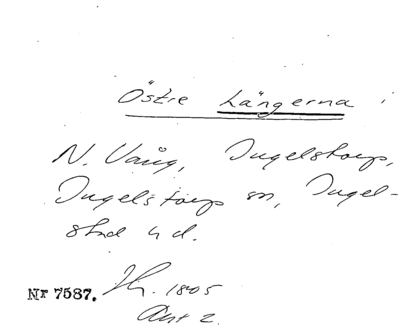 Östre Längerna
N. Vång, Ingelstorp,
Ingelstorps sn, Ingel-
stad hd.
Nr 7587. 1805
Akt 2.